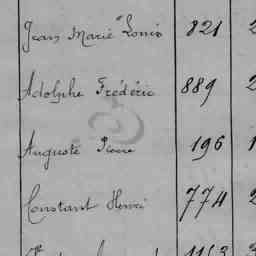 Jean Marie Louis 821 2
Adolphe Frédéric 889 2
Auguste Pierre 196 1
Constant Henri 774 2
1163 3